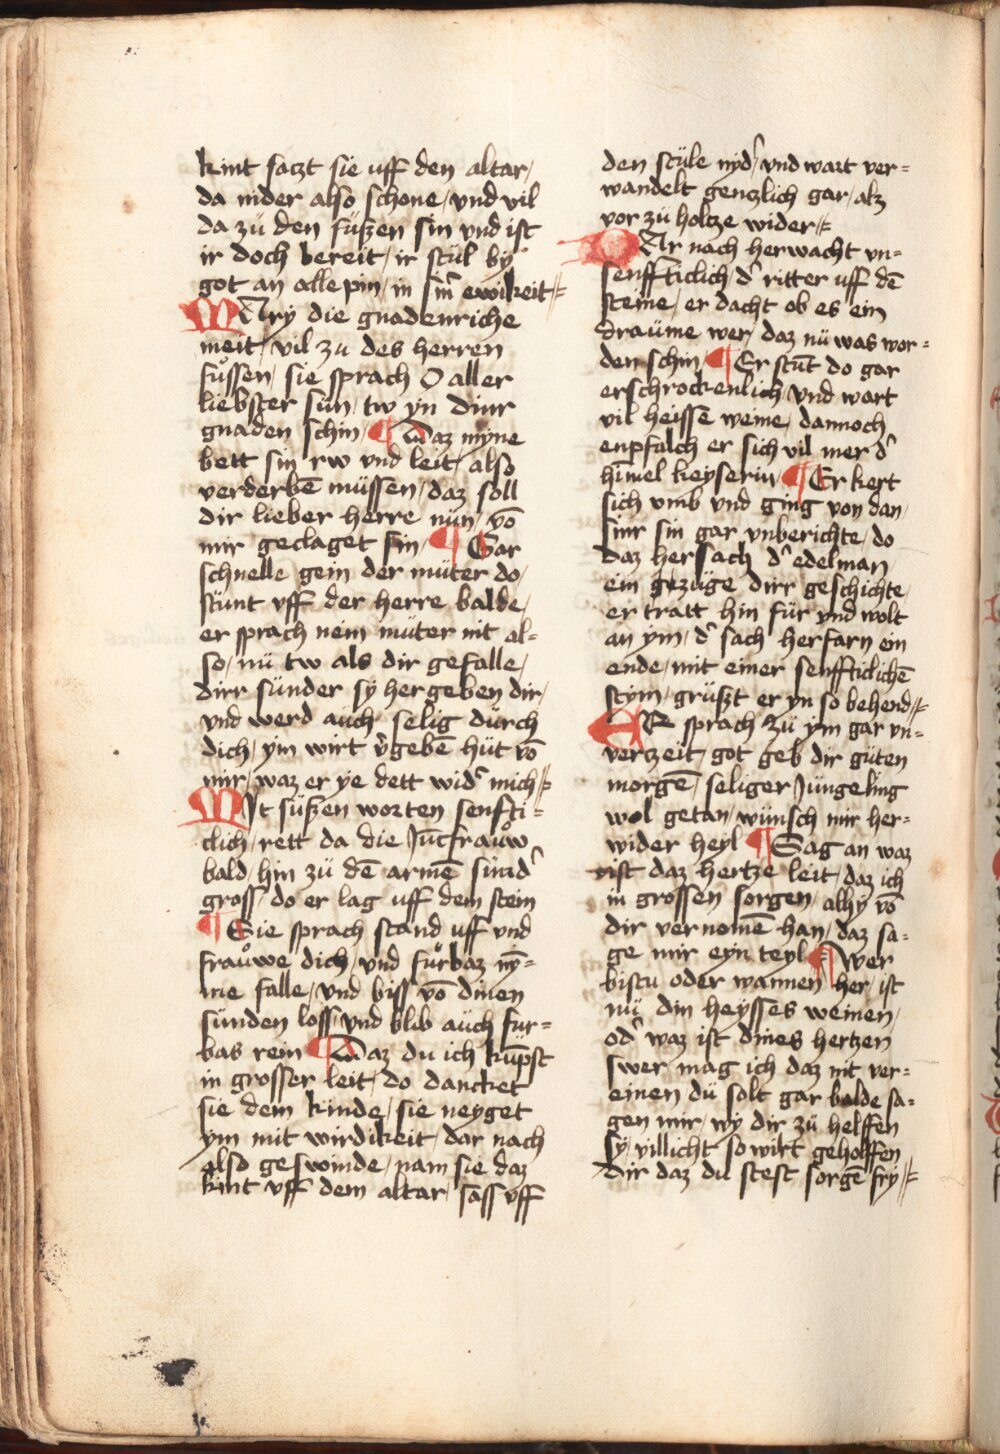 kint saczt sie uff den altar/
da nider also schone/ vnd vil
da zü den füßen sin vnd ist
ir doch bereit/ ir stül by
got an alle pin/ in sinr̄ ewikeit/
MAry die gnadenriche
meit/ vil zu des herren
füssen/ sie sprach O aller
liebster sün/ tw yn dinr
gnaden schin/ ¶ Waz myne
bett sin rw vnd leit/ also
verderbē müssen/ daz soll
dir lieber herre nün/ vō
mir geclaget sin/ ¶ Gar
schnelle gein der müter do/
stünt vff der herre balde/
er sprach nein müter nit al=
so/ nü tw als dir gefalle/
dirr sünder sy her geben dir/
vnd werd auch selig dürch
dich/ ym wirt v̾gebē hüt vō
mir/ waz er ye dett wid̾ mich/
MIt süßen worten senfti=
clich/ rett da die Jūcfrauͦw
bald/ hin zü dē armē sünd̾
gross/ do er lag uff dem stein
¶ Sie sprach stand uff vnd
frauͦwe dich/ vnd fürbaz ny̅=
me falle/ vnd biss vō dinen
sünden loss/ vnd blib auch für=
bas rein ¶ Waz du ich kūpst
in grosser leit/ do dancket
sie dem kinde/ sie neyget
ym mit wirdikeit/ dar nach
also geswinde/ nam sie daz
kint vff dem altar/ sass vff
den stüle nyd̾/ vnd wart ver=
wandelt genczlich gar/ alz
vor zü holtze wider/
DAr nach herwacht vn=
senffticlich/ d̾ ritter uff dē
steine/ er dacht ob es ein
draüme wer/ daz nü was wor=
den schin/ ¶ Er stūt do gar
erschrockenlich/ vnd wart
vil heisse weine/ dannoch
enpfalch er sich vil mer d̾
hīmel keyserin/ ¶ Er kert
sich vmb vnd ging von dan/
sinr sin gar vnberichte/ do
daz her sach d̾ edelman
ein gezüge dirr geschichte/
er tratt hin für vnd wolt
an ym/ d̾ sach herfarn ein
ende/ mit einer senffticlichē
stym/ grüßt er yn so behend/
ER sprach zü ym gar vn=
verczeit/ got geb dir güten
morgē/ seliger Jüngeling
wol getan/ wünsch mir her=
wider heyl ¶ Sag an waz
ist daz hertze leit/ daz ich
in grossen sorgen/ alhy vō
dir vernomē han/ daz sa=
ge mir eyn teyl/ ¶ Wer
bistu oder wannen her/ ist
nü din heysses weinen/
od̾ waz ist dines hertzen
swer mag ich daz nit ver=
einen dü solt gar balde sa=
gen mir/ wy dir zü helffen
sy/ villicht so wirt geholffen
dir daz du stest sorgē fry/